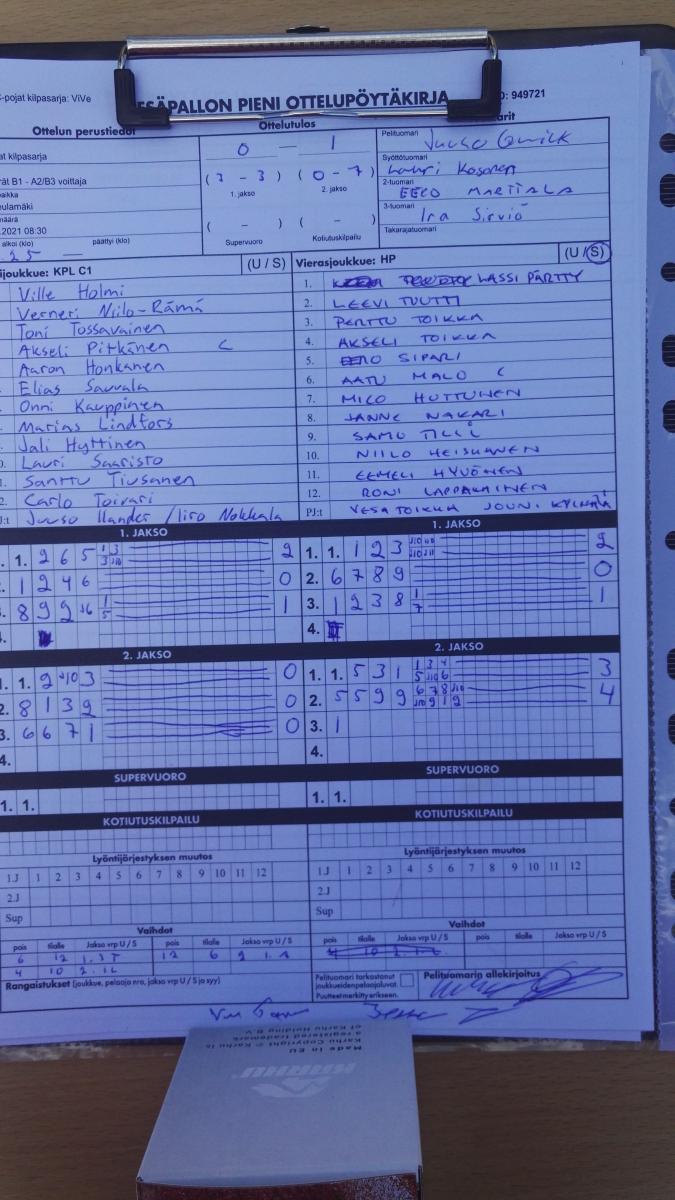 -pojat kilpasarja: ViVe
ESÄPALLON PIENI OTTELUPÖYTÄKIRJA
: 949721
Ottelun perustiedot
Ottelutulos
arit
at kilpasarja
0 — 1
Pelituomari
ät B1 - A2/B3 voittaja
(3 - 3) (0 - 7)
Syöttötuomari
Lauri Kosonen
1. jakso 2. jakso
2-tuomari
EERO MARTIALA
aikka
ulamäki
määrä
3-tuomari
Ira Sirviö
.2021 08:30
( - ) ( - )
Takarajatuomari
alkoi (klo) päättyi (klo)
Supervuoro Kotiutuskilpailu
.25 —
ijoukkue: KPL C1 (U / S)
Ville Holmi
Verneri Niilo-Rämä
Toni Tossavainen
Akseli Pitkänen C
Aaron Honkanen
Elias Sauvala
Onni Kauppinen
Marias Lindfors
Jali Hyttinen
Lauri Saaristo
Santtu Tiusanen
Carlo Toivari
J:t Juuso Ilander / Iiro Nokkala
Vierasjoukkue: HP (U / S)
1. LASSI PÄRTTY
2. LEEVI TUUTTI
3. PERTTU TOIKKA
4. AKSELI TOIKKA
5. EERO SIPARI
6. AATU MALO C
7. MICO HUTTUNEN
8. JANNE NAKARI
9. SAMU TILLI
10. NIILO HEISKANEN
11. EEMELI HYVÖNEN
12. RONI LAPPALAINEN
PJ:t VESA TOIKKA JOUNI
1. JAKSO
. 1. 2 6 5 1 3 3 J10 2
1 2 4 6 0
8 9 2 J6 1 5 1
2. JAKSO
1. 1. 2 J10 3 0
2. 8 1 3 9 0
3. 6 6 7 1 0
4.
SUPERVUORO
1. 1.
KOTIUTUSKILPAILU
Lyöntijärjestyksen muutos
1.J 1 2 3 4 5 6 7 8 9 10 11 12
2.J
Sup
Vaihdot
pois tilalle Jakso vrp U / S pois tilalle Jakso vrp U / S
6 12 12 6
4 10
Rangaistukset (joukkue, pelaaja nro, jakso vrp U / S ja syy)
1. JAKSO
1. 1. 1 2 3 2
2. 6 7 8 9 0
3. 1 2 3 8 1 7 1
4.
2. JAKSO
1. 1. 5 3 1 1 3 4 5 J10 6 3
2. 5 5 9 9 6 7 8 J10 J10 9 1 2 4
3. 1
4.
SUPERVUORO
1. 1.
KOTIUTUSKILPAILU
Lyöntijärjestyksen muutos
1.J 1 2 3 4 5 6 7 8 9 10 11 12
2.J
Sup
Vaihdot
pois tilalle Jakso vrp U / S pois tilalle Jakso vrp U / S
4 10
Pelituomari tarkastanut
joukkueiden pelaajaluvat.
Puutteet merkitty erikseen.
Pelituomarin allekirjoitus
Made in EU
Karhu Copyright © Karhu is
a registered trademark
of Karhu Holding B.V.
KARHU